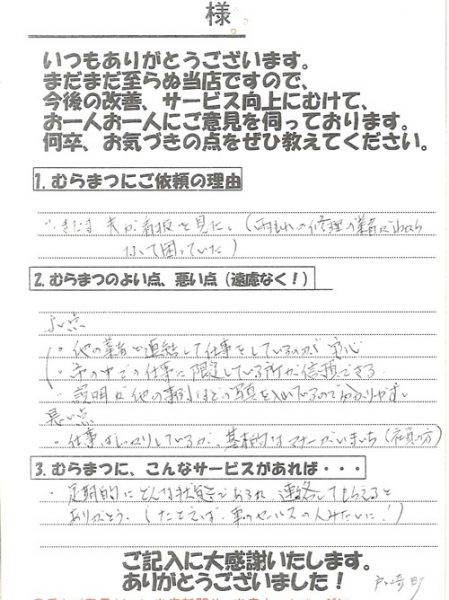 様
いつもありがとうございます。
まだまだ至らぬ当店ですので、
今後の改善、サービス向上にむけて、
お一人お一人にご意見を伺っております。
何卒、お気づきの点をぜひ教えてください。
1. むらまつにご依頼の理由
夫が看板を見た。(雨もれの修理の業者がわから
なくて困っていた)
2. むらまつのよい点、悪い点(遠慮なく!)
よい点
・他の業者と連結して仕事をしているのが安心
・市の中での仕事に限定している所が信頼できる
・説明が他の事例などの写真を入れているので分かりやすい
悪い点
・仕事はしっかりしているが、基本的なマナーがいまいち(社員の方)
3. むらまつに、こんなサービスがあれば・・・
・定期的にどんな状態であるか連絡してもらえると
ありがとう。(たとえば車のセールスの人みたいに!)
ご記入に大感謝いたします。
ありがとうございました!